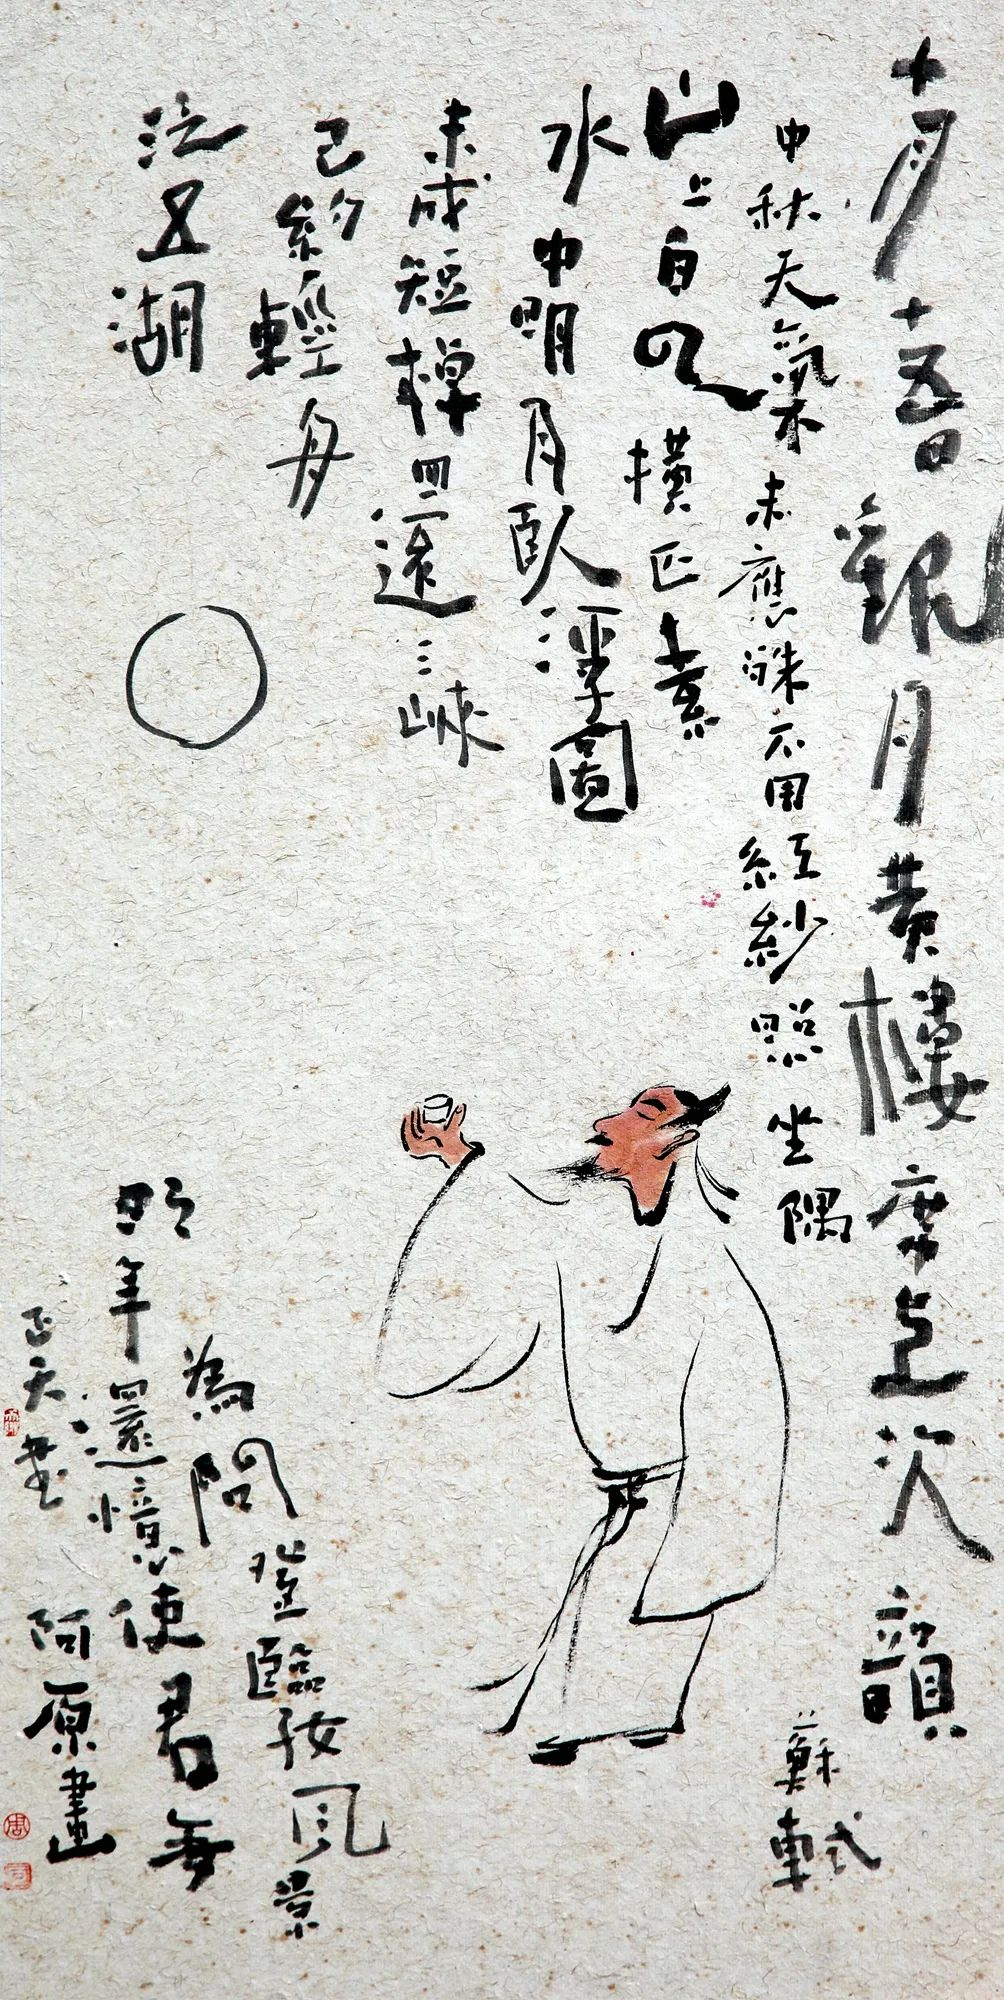 十月十五日觀月黄樓席上次韻
蘇軾
中秋天氣未應殊不用紅紗照坐隅
山上白云横匹素
水中明月臥浮圖
未成短棹還三峽
已約輕舟
泛五湖
為問登臨好风景
明年還憶使君無
正天書
阿原畫